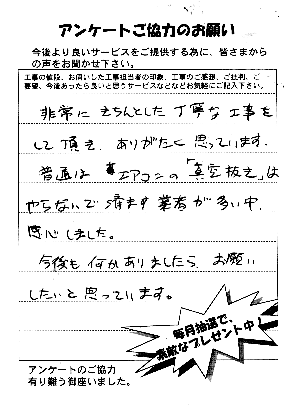 アンケートご協力のお願い
今後より良いサービスをご提供する為に、皆さまから
の声をお聞かせ下さい。
工事の値段、お伺いした工事担当者の印象、工事のご感想、ご批判、ご
要望、今後あったら良いと思うサービスなどなどお気軽にご記入下さい。
非常にきちんとした丁寧な工事を
して頂き、ありがたく思っています。
普通はエアコンの「真空抜き」は
やらないで済ます業者が多い中、
感心しました。
今後も何かありましたら、お願い
したいと思っています。
毎月抽選で、
素敵なプレゼント中
アンケートのご協力
有り難う御座いました。